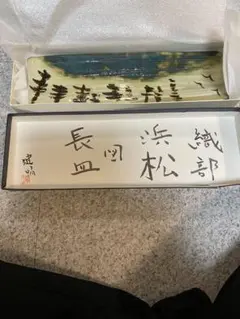 織部
浜松
図
長皿